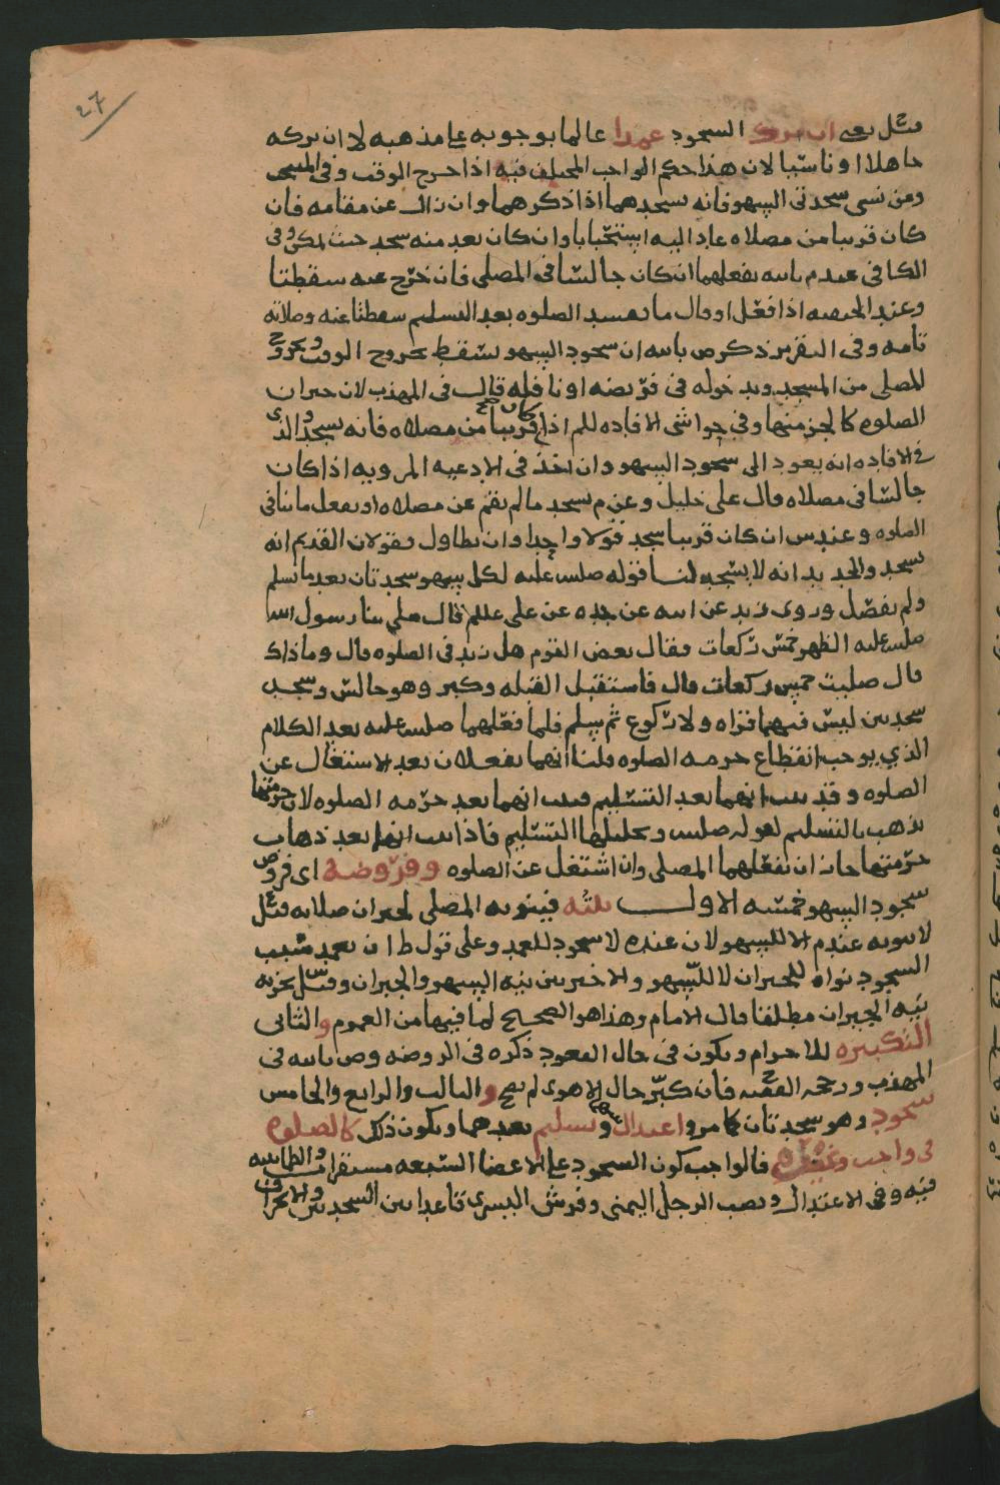 27
قبل يعني ان ترك السجود عمدا عالما بوجوبه على مذهبه لا ان تركه
جاهلا او ناسيا لان هذا حكم الواجب المختلف فيه اذا خرج الوقت وفي
ومن نسي سجدتي السهو فانه يسجدهما اذا ذكرهما وان زال عن مقامه فان
كان قريبا من مصلاه عاد اليه استحبابا وان كان بعد منه سجد حيث امكن وفي
الكافي عندم بالله يفعلهما ان كان جالسا في المصلى فان خرج عنه سقطتا
وعند الحنفيه اذا فعل او قال ما يفسد الصلوه بعد التسليم سقطتا عنه وصلاته
تامه وفي التقرير ذكر ص بالله ان سجود السهو يسقط بخروج الوقت وبخروج
المصلي من المسجد وبدخوله في فريضه او نافله قال في المهذب لان جبران
الصلوه كالجزء منها وفي حواشي الافاده للم اذا كان قريبا من مصلاه فانه يسجد والذي
في الافاده انه يعود الى سجود السهو وان اخذ في الادعيه المرويه اذا كان
جالسا في مصلاه قال علي خليل وعن م يسجد ما لم يقم عن مصلاه او يفعل ما ينافي
الصلوه وعند س ان كان قريبا سجد قولا واحدا وان تطاول فقولان القديم انه
يسجد والجديد انه لا يسجد لنا قوله صلى عليه لكل سهو سجدتان بعد ما تسلم
ولم يفصل وروى زيد عن ابيه عن جده عن علي علم قال صلى بنا رسول الله
صلى عليه الظهر خمس ركعات فقال بعض القوم هل زيد في الصلوه قال وما ذاك
قال صليت خمس ركعات قال فاستقبل القبله وكبر وهو جالس وسجد
سجدتين ليس فيهما قراه ولا ركوع ثم سلم فلما فعلهما صلى عليه بعد الكلام
الذي يوجب انقطاع حرمه الصلوه قلنا انهما يفعلان بعد الاشتغال عن
الصلوه وقد ثبت انهما بعد التسليم فثبت انهما بعد حرمه الصلوه لان حرمتها
تذهب بالتسليم لقوله صلى وتحليلها التسليم فاذا ثبت انهما بعد ذهاب
حرمتها جاز ان يفعلهما المصلي وان اشتغل عن الصلوه وفروضه اي فروض
سجود السهو خمسه الاول نيته فينوي به المصلي لجبران صلاته قيل
لا ينويه عندم الا للسهو لان عنده لا سجود للعمد وعلى قول ط ان تعمد سبب
السجود نواه للجبران لا للسهو والاخيرين نيه السهو والجبران وقيل يجزيه
نيه الجبران مطلقا قال الامام وهذا هو الصحيح لما فيها من العموم والثاني
التكبيره للاحرام وتكون في حال القعود ذكره في الروضه وص بالله في
المهذب ورجحه الفقيه ح فان كبر حال الاهوى لم يصح والثالث والرابع والخامس
سجود وهو سجدتان كما مر واعتدال بينهما وتسليم بعدهما ويكون ذلك كالصلوه
في واجب وغيره فالواجب كون السجود على الاعضا السبعه مستقرات والطمانينه
فيه وفي الاعتدال ونصب الرجل اليمنى وفرش اليسرى قاعدا بين السجدتين والانحراف